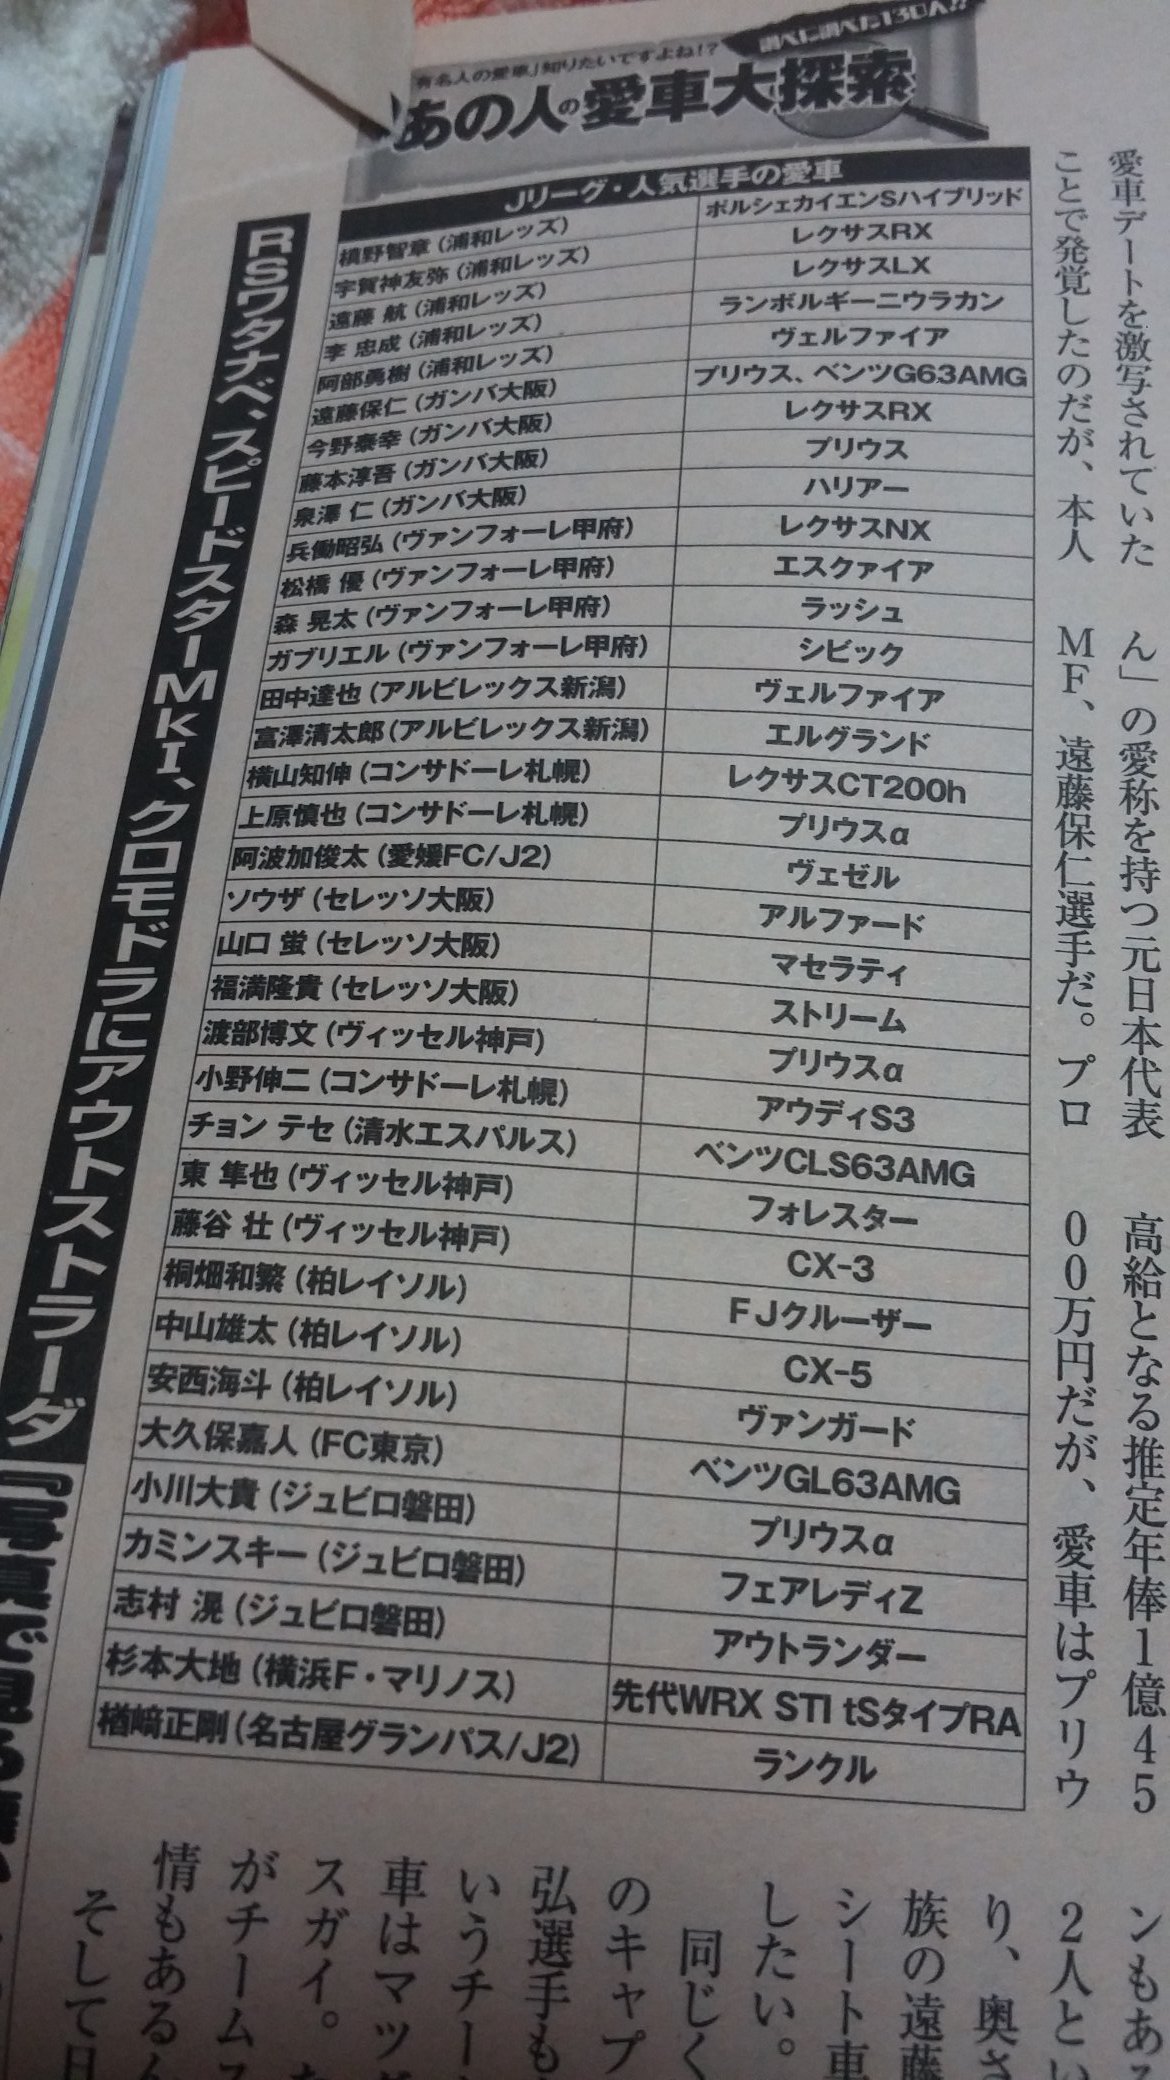 調べに調べた130人!!
有名人の愛車」知りたいですよね!?
あの人の愛車大探索
Jリーグ・人気選手の愛車
槙野智章(浦和レッズ) ポルシェカイエンSハイブリッド
宇賀神友弥(浦和レッズ) レクサスRX
遠藤 航(浦和レッズ) レクサスLX
李 忠成(浦和レッズ) ランボルギーニウラカン
阿部勇樹(浦和レッズ) ヴェルファイア
遠藤保仁(ガンバ大阪) プリウス、ベンツG63AMG
今野泰幸(ガンバ大阪) レクサスRX
藤本淳吾(ガンバ大阪) プリウス
泉澤 仁(ガンバ大阪) ハリアー
兵働昭弘(ヴァンフォーレ甲府) レクサスNX
松橋 優(ヴァンフォーレ甲府) エスクァイア
森 晃太(ヴァンフォーレ甲府) ラッシュ
ガブリエル(ヴァンフォーレ甲府) シビック
田中達也(アルビレックス新潟) ヴェルファイア
富澤清太郎(アルビレックス新潟) エルグランド
横山知伸(コンサドーレ札幌) レクサスCT200h
上原慎也(コンサドーレ札幌) プリウスα
阿波加俊太(愛媛FC/J2) ヴェゼル
ソウザ(セレッソ大阪) アルファード
山口 蛍(セレッソ大阪) マセラティ
福満隆貴(セレッソ大阪) ストリーム
渡部博文(ヴィッセル神戸) プリウスα
小野伸二(コンサドーレ札幌) アウディS3
チョン テセ(清水エスパルス) ベンツCLS63AMG
東 隼也(ヴィッセル神戸) フォレスター
藤谷 壮(ヴィッセル神戸) CX-3
桐畑和繁(柏レイソル) FJクルーザー
中山雄太(柏レイソル) CX-5
安西海斗(柏レイソル) ヴァンガード
大久保嘉人(FC東京) ベンツGL63AMG
小川大貴(ジュビロ磐田) プリウスα
カミンスキー(ジュビロ磐田) フェアレディZ
志村 滉(ジュビロ磐田) アウトランダー
杉本大地(横浜F・マリノス) 先代WRX STI tSタイプRA
楢﨑正剛(名古屋グランパス/J2) ランクル
愛車デートを激写されていた
ことで発覚したのだが、本人
ん」の愛称を持つ元日本代表
MF、遠藤保仁選手だ。プロ
高給となる推定年俸1億45
00万円だが、愛車はプリウ
ンもある
2人とい
り、奥さ
族の遠藤
シート車
したい。
同じく
のキャプ
弘選手も
いうチー
車はマツダ
スガイ。
がチームス
情もあるん
そして日
RSワタナベ、スピードスターMkI、クロモドラにアウトストラーダ
『写真で見る